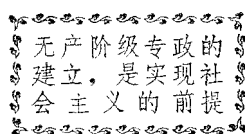 无产阶级专政的
建立，是实现社
会主义的前提